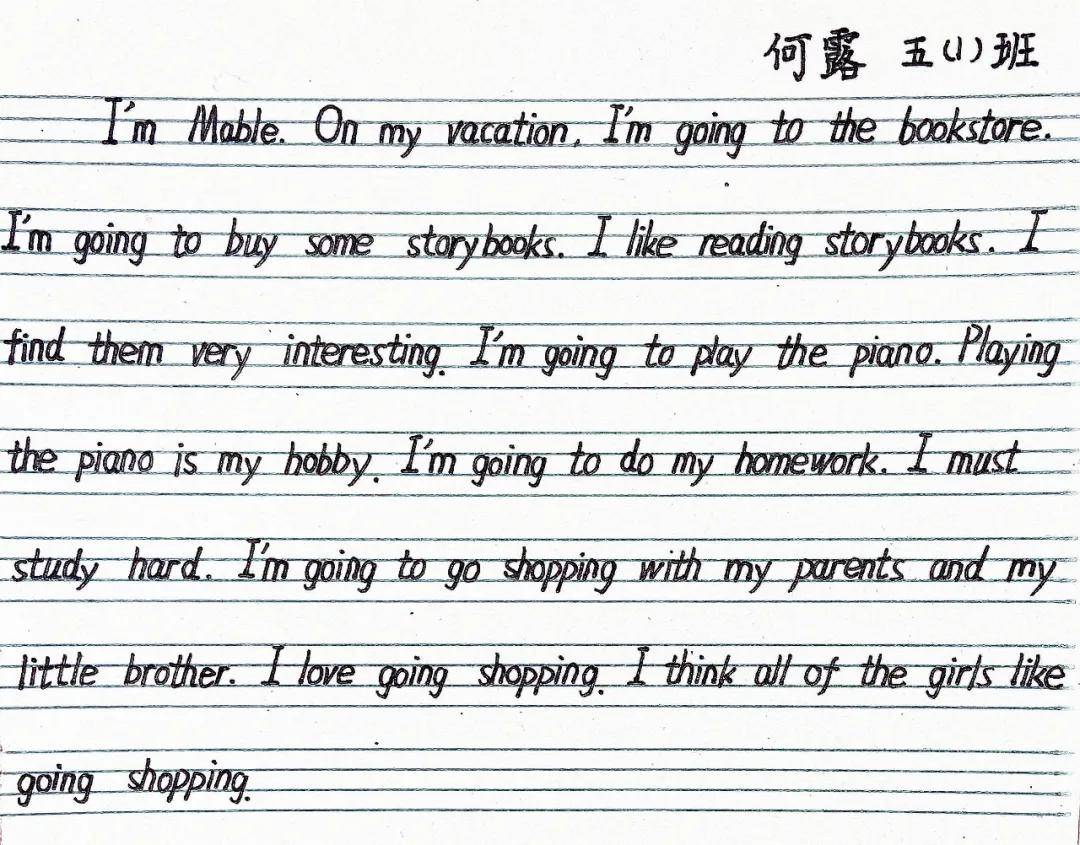 何露 五(1)班
I'm Mable. On my vacation, I'm going to the bookstore.
I'm going to buy some storybooks. I like reading storybooks. I
find them very interesting. I'm going to play the piano. Playing
the piano is my hobby. I'm going to do my homework. I must
study hard. I'm going to go shopping with my parents and my
little brother. I love going shopping. I think all of the girls like
going shopping.